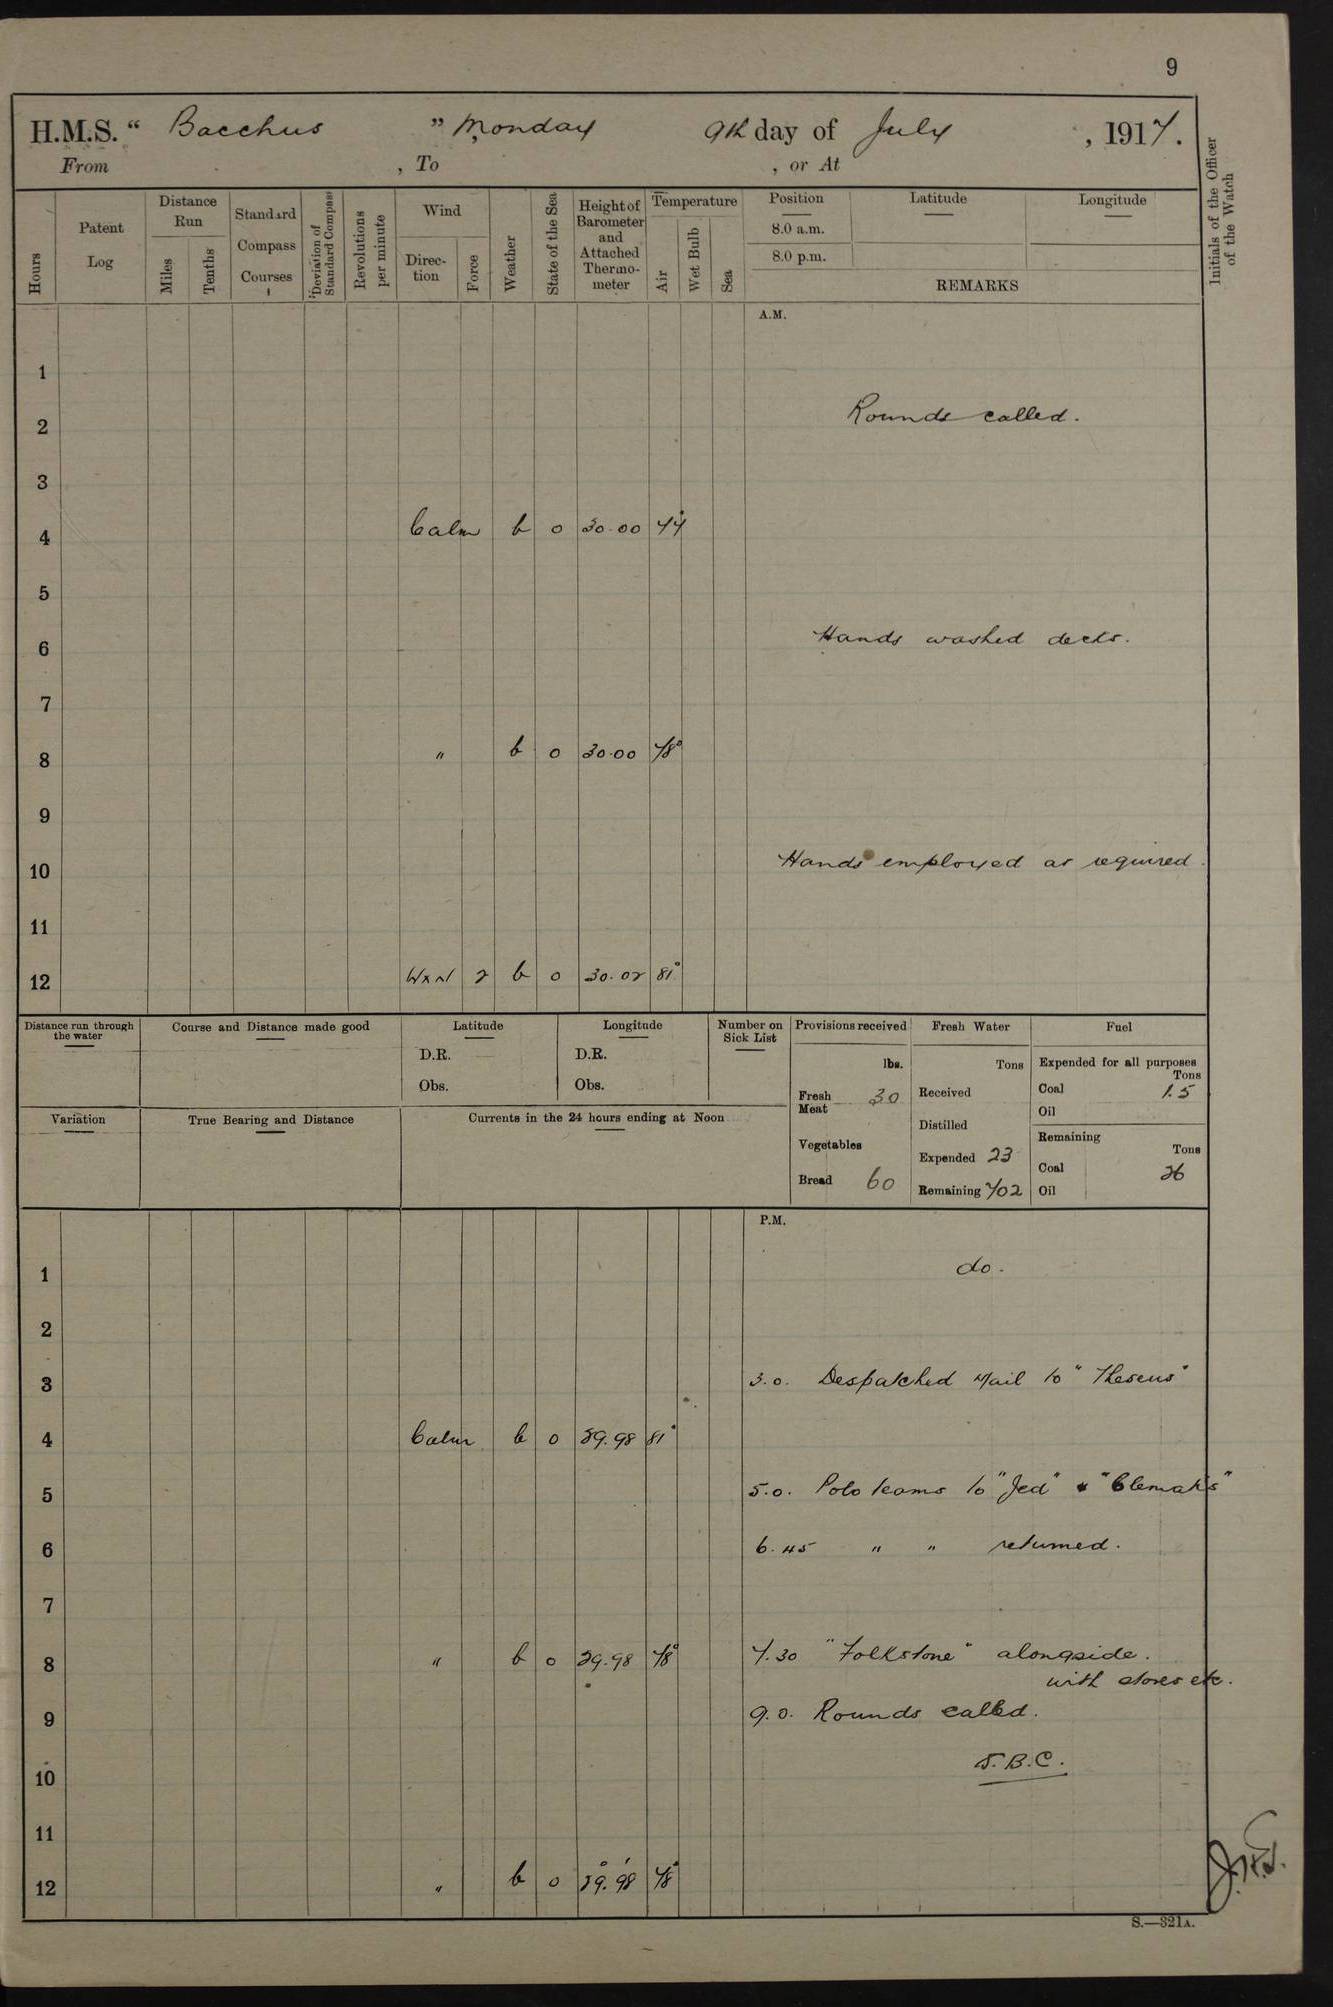 9
H.M.S. “ Bacchus ” Monday 9th day of July , 1917.
From , To , or At
Hours
Patent Log
Distance Run
Miles
Tenths
Standard Compass Courses
Deviation of Standard Compass
Revolutions per minute
Wind
Direction
Force
Weather
State of the Sea
Height of Barometer and Attached Thermometer
Temperature
Air
Wet Bulb
Sea
Position Latitude Longitude
8.0 a.m.
8.0 p.m.
REMARKS
Initials of the Officer of the Watch
A.M.
1
2 Rounds called.
3
4 Calm b 0 30.00 77°
5
6 Hands washed decks.
7
8 " b 0 30.00 78°
9
10 Hands employed as required.
11
12 WxN 2 b 0 30.02 81°
Distance run through the water
Course and Distance made good
Latitude
D.R.
Obs.
Longitude
D.R.
Obs.
Number on Sick List
Variation
True Bearing and Distance
Currents in the 24 hours ending at Noon
Provisions received
lbs.
Fresh Meat 30
Vegetables
Bread 60
Fresh Water
Tons
Received
Distilled
Expended 23
Remaining 702
Fuel
Expended for all purposes
Tons
Coal 1.5
Oil
Remaining
Tons
Coal 26
Oil
P.M.
1 do.
2
3 3.0. Despatched Mail to "Theseus"
4 Calm b 0 29.98 81°
5 5.0. Polo teams to "Jed" & "Clematis"
6 6.45 " " returned.
7
8 " b 0 29.98 78° 7.30 "Folkstone" alongside.
with stores etc.
9 9.0. Rounds called.
10 S.B.C.
11
12 " b 0 29.98 78°
S.—321A.